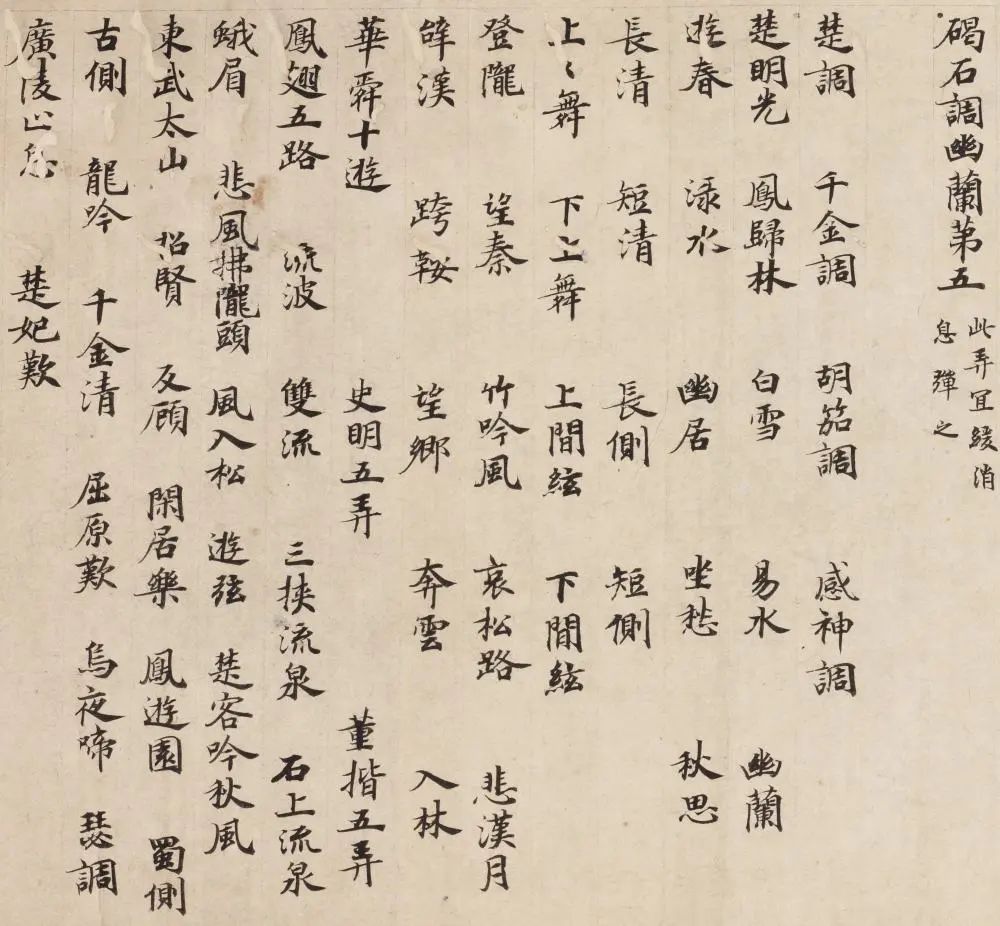 碣石調幽蘭第五
此弄宜緩消
息彈之
楚調 千金調 胡笳調 感神調
楚明光 鳳歸林 白雪 易水 幽蘭
遊春 淥水 幽居 坐愁 秋思
長清 短清 長側 短側
上〻舞 下上舞 上間絃 下間絃
登隴 望秦 竹吟風 哀松路 悲漢月
辞漢 跨鞍 望鄉 奔雲 入林
華舜十遊 史明五弄 董揩五弄
鳳翅五路 流波 雙流 三挾流泉 石上流泉
蛾眉 悲風拂隴頭 風入松 遊弦 楚客吟秋風
東武太山 招賢 反顧 閑居樂 鳳遊園 蜀側
古側 龍吟 千金清 屈原歎 烏夜啼 瑟調
廣陵止息 楚妃歎